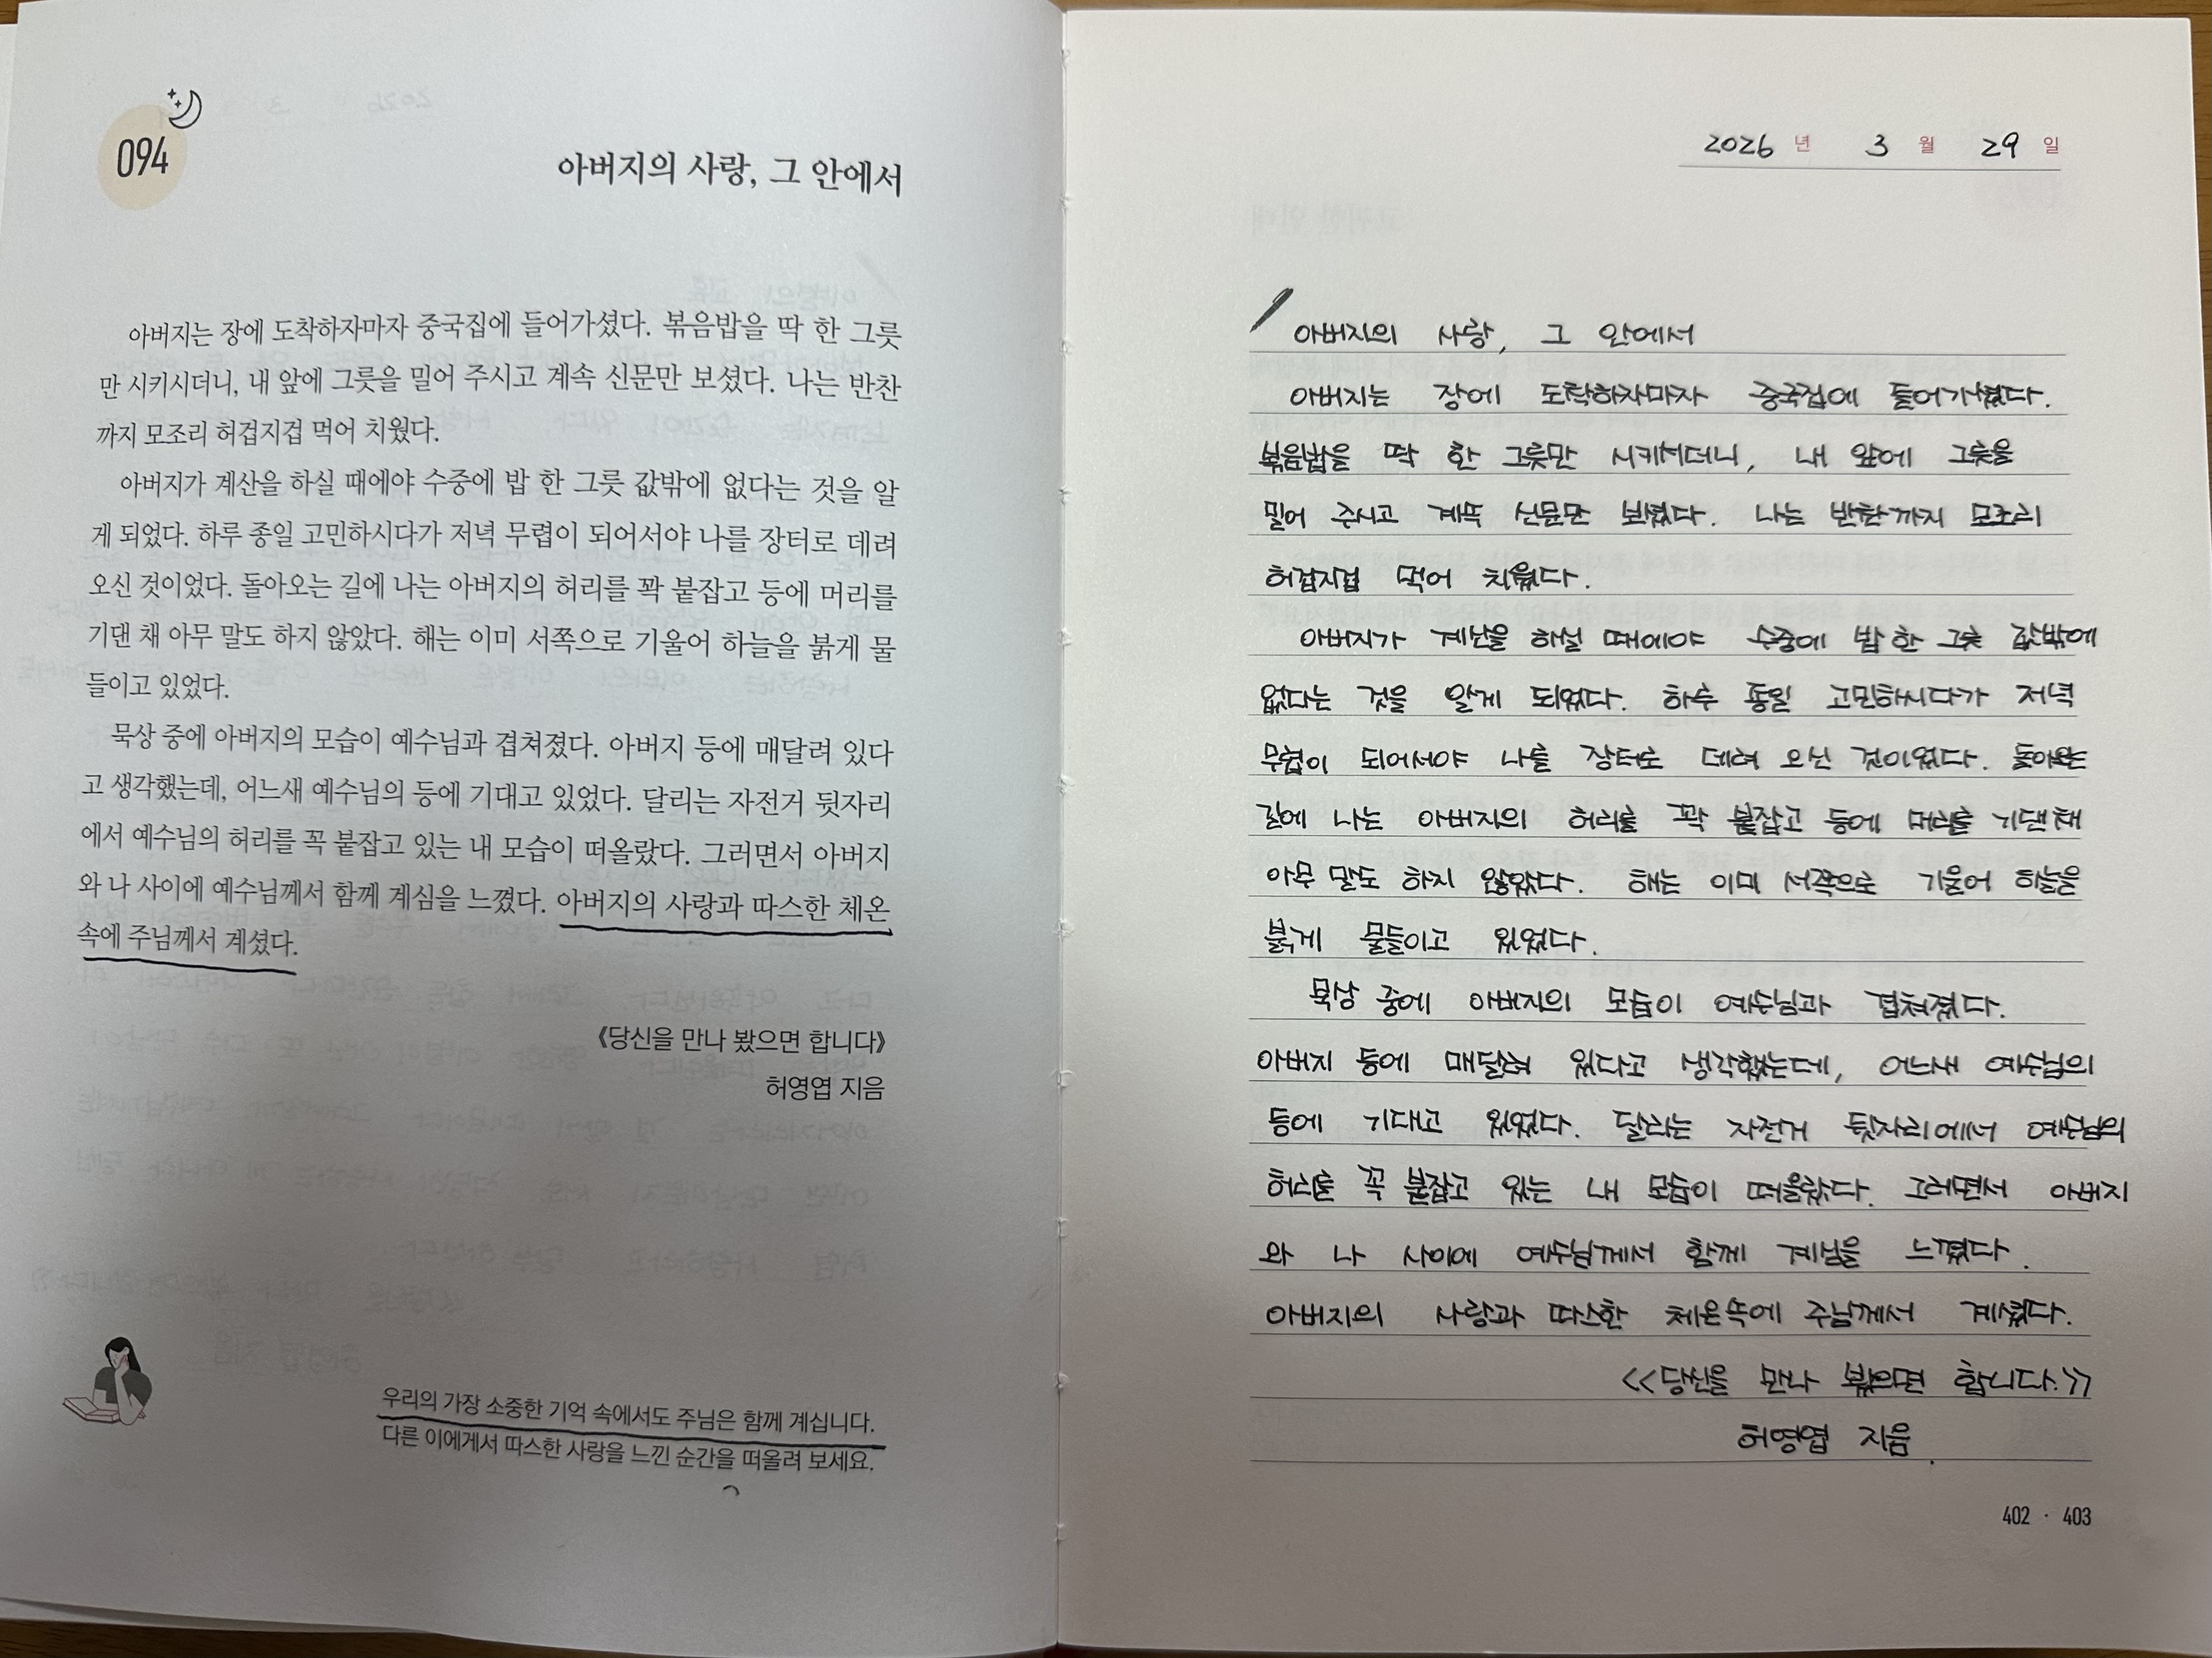 094
아버지의 사랑, 그 안에서
아버지는 장에 도착하자마자 중국집에 들어가셨다. 볶음밥을 딱 한 그릇
만 시키시더니, 내 앞에 그릇을 밀어 주시고 계속 신문만 보셨다. 나는 반찬
까지 모조리 허겁지겁 먹어 치웠다.
아버지가 계산을 하실 때에야 수중에 밥 한 그릇 값밖에 없다는 것을 알
게 되었다. 하루 종일 고민하시다가 저녁 무렵이 되어서야 나를 장터로 데려
오신 것이었다. 돌아오는 길에 나는 아버지의 허리를 꽉 붙잡고 등에 머리를
기댄 채 아무 말도 하지 않았다. 해는 이미 서쪽으로 기울어 하늘을 붉게 물
들이고 있었다.
묵상 중에 아버지의 모습이 예수님과 겹쳐졌다. 아버지 등에 매달려 있다
고 생각했는데, 어느새 예수님의 등에 기대고 있었다. 달리는 자전거 뒷자리
에서 예수님의 허리를 꼭 붙잡고 있는 내 모습이 떠올랐다. 그러면서 아버지
와 나 사이에 예수님께서 함께 계심을 느꼈다. 아버지의 사랑과 따스한 체온
속에 주님께서 계셨다.
《당신을 만나 봤으면 합니다》
허영엽 지음
우리의 가장 소중한 기억 속에서도 주님은 함께 계십니다.
다른 이에게서 따스한 사랑을 느낀 순간을 떠올려 보세요.
2026 년 3 월 29 일
아버지의 사랑, 그 안에서
아버지는 장에 도착하자마자 중국집에 들어가셨다.
볶음밥을 딱 한 그릇만 시키시더니, 내 앞에 그릇을
밀어 주시고 계속 신문만 보셨다. 나는 반찬까지 모조리
허겁지겁 먹어 치웠다.
아버지가 계산을 하실 때에야 수중에 밥 한 그릇 값밖에
없다는 것을 알게 되었다. 하루 종일 고민하시다가 저녁
무렵이 되어서야 나를 장터로 데려 오신 것이었다. 돌아오는
길에 나는 아버지의 허리를 꽉 붙잡고 등에 머리를 기댄 채
아무 말도 하지 않았다. 해는 이미 서쪽으로 기울어 하늘을
붉게 물들이고 있었다.
묵상 중에 아버지의 모습이 예수님과 겹쳐졌다.
아버지 등에 매달려 있다고 생각했는데, 어느새 예수님의
등에 기대고 있었다. 달리는 자전거 뒷자리에서 예수님의
허리를 꼭 붙잡고 있는 내 모습이 떠올랐다. 그러면서 아버지
와 나 사이에 예수님께서 함께 계심을 느꼈다.
아버지의 사랑과 따스한 체온속에 주님께서 계셨다.
<<당신을 만나 봤으면 합니다.>>
허영엽 지음.
402 · 403